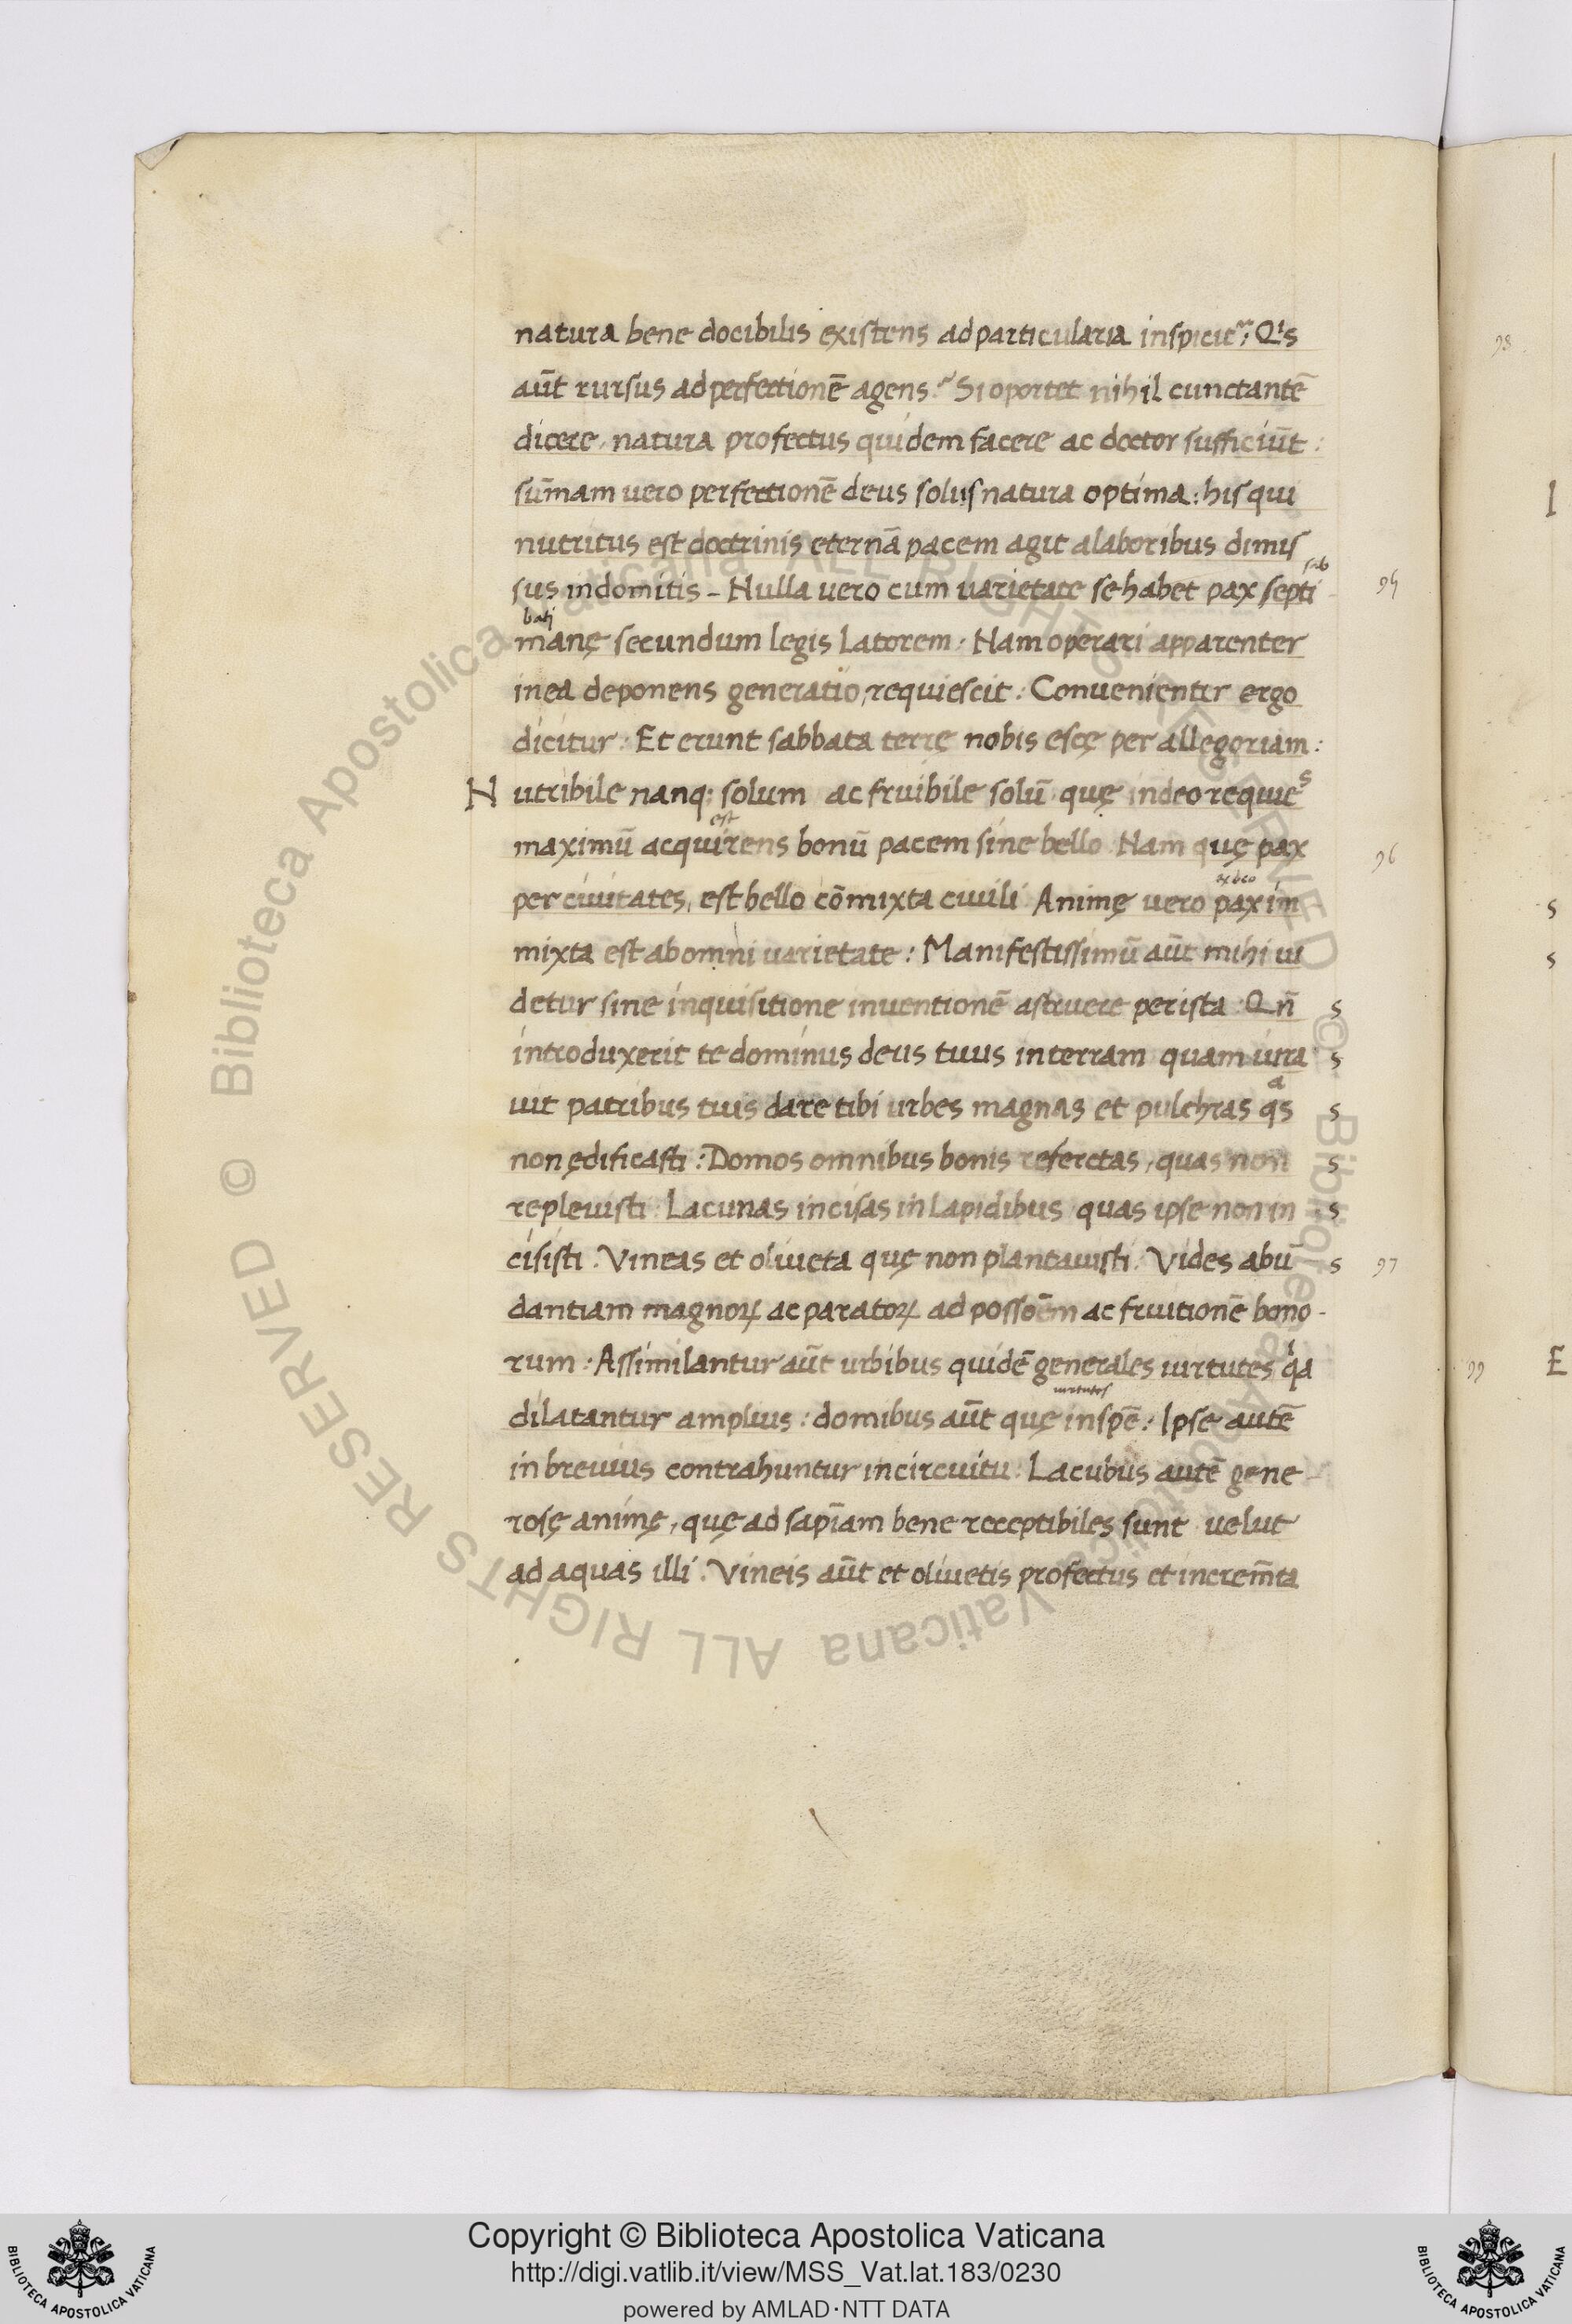 natura bene docibilis existens ad particularia inspicit; Qⁱs
aūt rursus ad perfectionē agens. Si oportet nihil cunctantē
dicere, natura profectus quidem facere ac doctor sufficiūt:
sūmam uero perfectionē deus solus natura optima: his qui
nutritus est doctrinis eternā pacem agit a laboribus dimis
sab
sus indomitis - Nulla uero cum uarietate se habet pax septi 95
batj
manę secundum legis Latorem. Nam operari apparenter
in ea deponens generatio, requiescit: Conuenienter ergo
dicitur: Et erunt sabbata terrę nobis escę per allegoriam:
Nutribile nanq; solum ac fruibile solū quę in deo requies
est
maximū acquirens bonū pacem sine bello. Nam quę pax 96
per ciuitates, est bello cōmixta ciuili. Animę uero pax im
mixta est ab omni uarietate: Manifestissimū aūt mihi ui
detur sine inquisitione inuentionē astruere per ista. Qn̄ s
introduxerit te dominus deus tuus in terram quam iura s
a
uit patribus tuis dare tibi urbes magnas et pulchras qs s
non ędificasti: Domos omnibus bonis referctas, quas non s
repleuisti. Lacunas incisas in Lapidibus quas ipse non in s
cisisti. Vineas et oliueta quę non plantauisti. Vides abū s 97
dantiam magnoꝝ ac paratoꝝ ad possoēm ac fruitionē bono-
rum: Assimilantur aūt urbibus quidē generales uirtutes qⁱa
uirtutes
dilatantur amplius: domibus aūt quę in spē: Ipse autē
in breuius contrahuntur in circuitu: Lacubus autē gene
rosę animę, quę ad sapīam bene receptibiles sunt uelut
ad aquas illi. Vineis aūt et oliuetis profectus et increm̄ta
98
I
s
s
99 E
© Biblioteca Apostolica Vaticana ALL RIGHTS RESERVED © Biblioteca Apostolica Vaticana ALL RIGHTS RESERVED
BIBLIOTECA APOSTOLICA VATICANA
Copyright © Biblioteca Apostolica Vaticana
http://digi.vatlib.it/view/MSS_Vat.lat.183/0230
powered by AMLAD·NTT DATA
BIBLIOTECA APOSTOLICA VATICANA